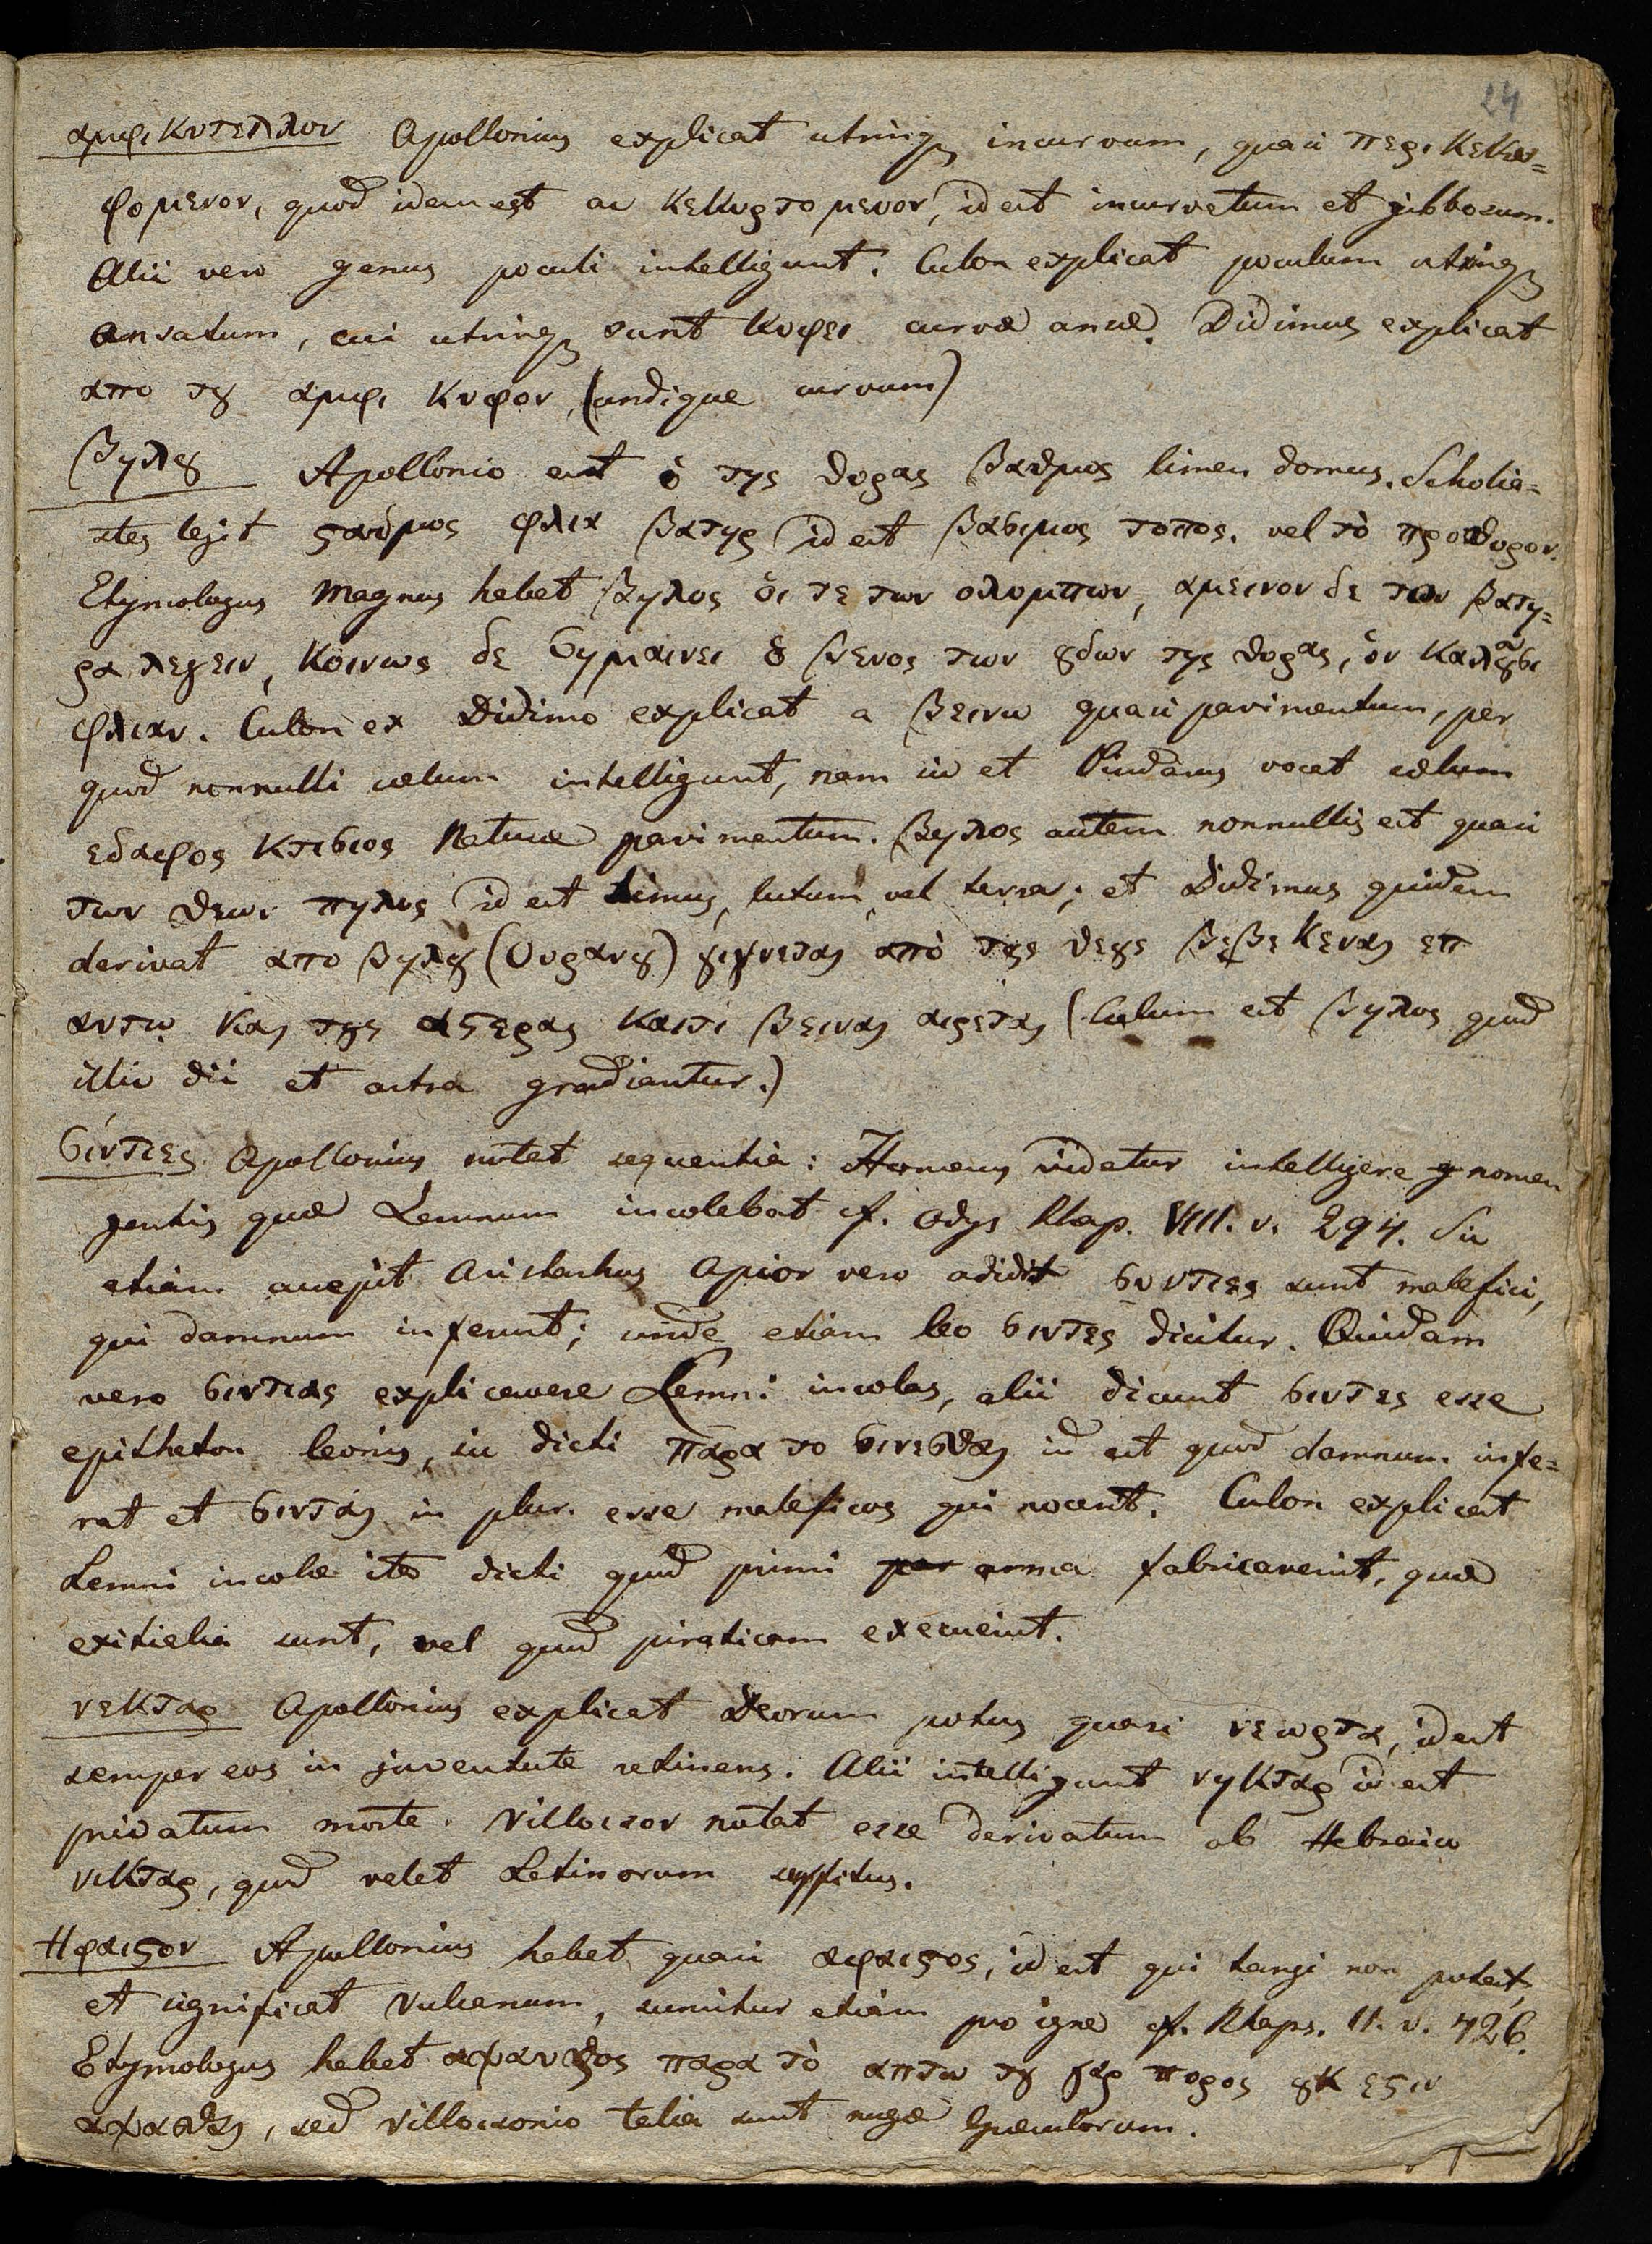 24
αμφικυπελλον Apollonius explicat utrinq incurvum, quasi περικεκυ=
φομενον, quod idem est ac κεκυρτομενον, id est incurvatum et gibbosum.
Alii vero genus poculi intelligunt. Culon explicat poculum utrinq
ansatum, cui utrinq sunt κυφει curvæ ansæ. Didimus explicat
απο τȣ αμφι κυφον (undique curvum)
βηλȣ Apollonio est ὁ της θυρας βαθμος limen domus. Scholia=
stes legit ϛαθμος φλια βατηρ id est βασιμος τοπος. vel τὸ προθυρον.
Etymologus Magnus habet βηλος ὁι τε των ολυμπων, αμεινον δε τον βατη=
ρα λεγειν, κοινως δε σημαινει ὁ βενος των ȣδων της θυρας, ὁν καλȣσι
φλιαν. Culon ex Didimo explicat a βεινω quasi pavimentum, per
quod nonnulli cælum intelligunt, nam sic et Pindarus vocat cælum
εδαφος κτισιος Naturæ pavimentum. βηλος autem nonnullis est quasi
των θεων πηλος id est limus, lutum, vel terra; et Didimus quidem
derivat απο βηλȣ (Ουρανȣ) γιγνεται απὸ τȣς θεȣς βεβεκεναι επ
αυτω και τȣς αϛερας καιτι βειναι αιρεται (Cælum est βηλος quod
illic dii et astra gradiantur.)
σίντιες Apollonius notat sequentia: Homerus videtur intelligere nomen
gentis quæ Lemnum incolebat cf. Odys Rhap. VIII. v. 294. Sic
etiam accepit Aristarhus Apion vero adidit σιντιες sunt malefici,
qui damnum inferunt; unde etiam leo σιντες dicitur. Quidam
vero σιντιας explicavere Lemni incolas, alii dicunt σιντες esse
epitheton leonis, sic dicti παρα το σινεσθαι id est quod damnum infe=
rat et σινται in plur. esse maleficos qui nocent. Culon explicat
Lemni incolæ ita dicti quod primi arma fabricaverint, quæ
exitialia sunt, vel quod piraticam exercuerint.
νεκταρ Apollonius explicat Deorum potus quasi νεωρτα, id est
semper eos in juventute retinens. Alii intelligunt νηκταρ id est
privatum morte. Villoison notat esse derivatum ab Hebraico
νικταρ, quod valet Latinorum suffitus.
Ηφαιϛον Apollonius habet quasi αφαιϛος, id est qui tangi non potest,
et significat Vulcanum, sumitur etiam pro igne cf. Rhaps. II. v. 426.
Etymologus habet αψαυϛος παρα τὸ απτω τȣ γαρ πυρος ȣκ εϛιν
αψασθαι, sed Villoisonio talia sunt nugæ Græculorum.